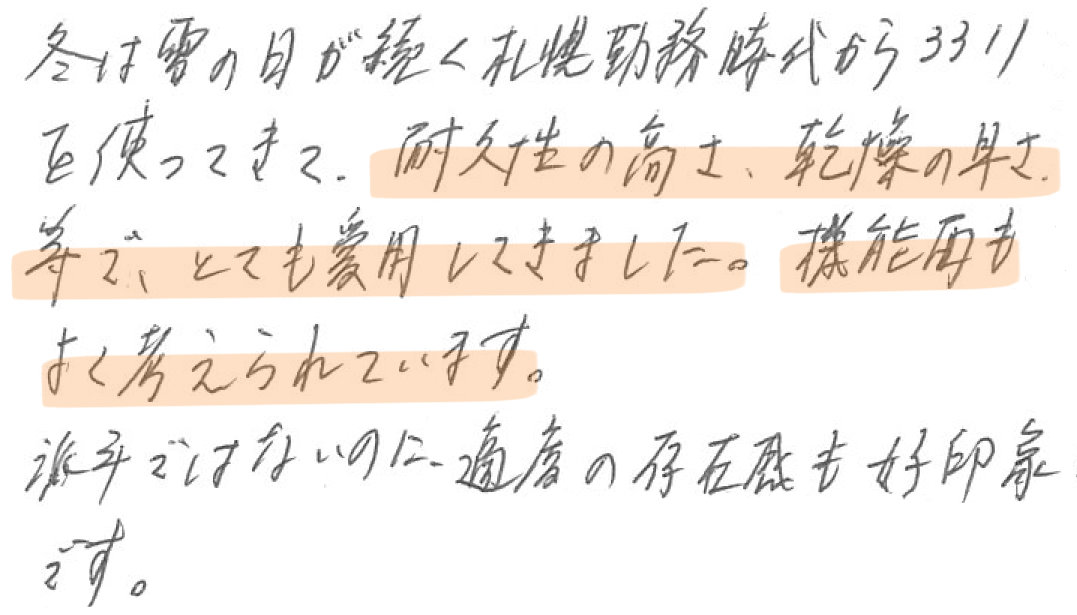 冬は雪の日が続く札幌勤務時代から3311
を使ってきて、耐久性の高さ、乾燥の早さ、
等で、とても愛用してきました。機能面も
よく考えられています。
派手ではないのに、適度の存在感も好印象
です。